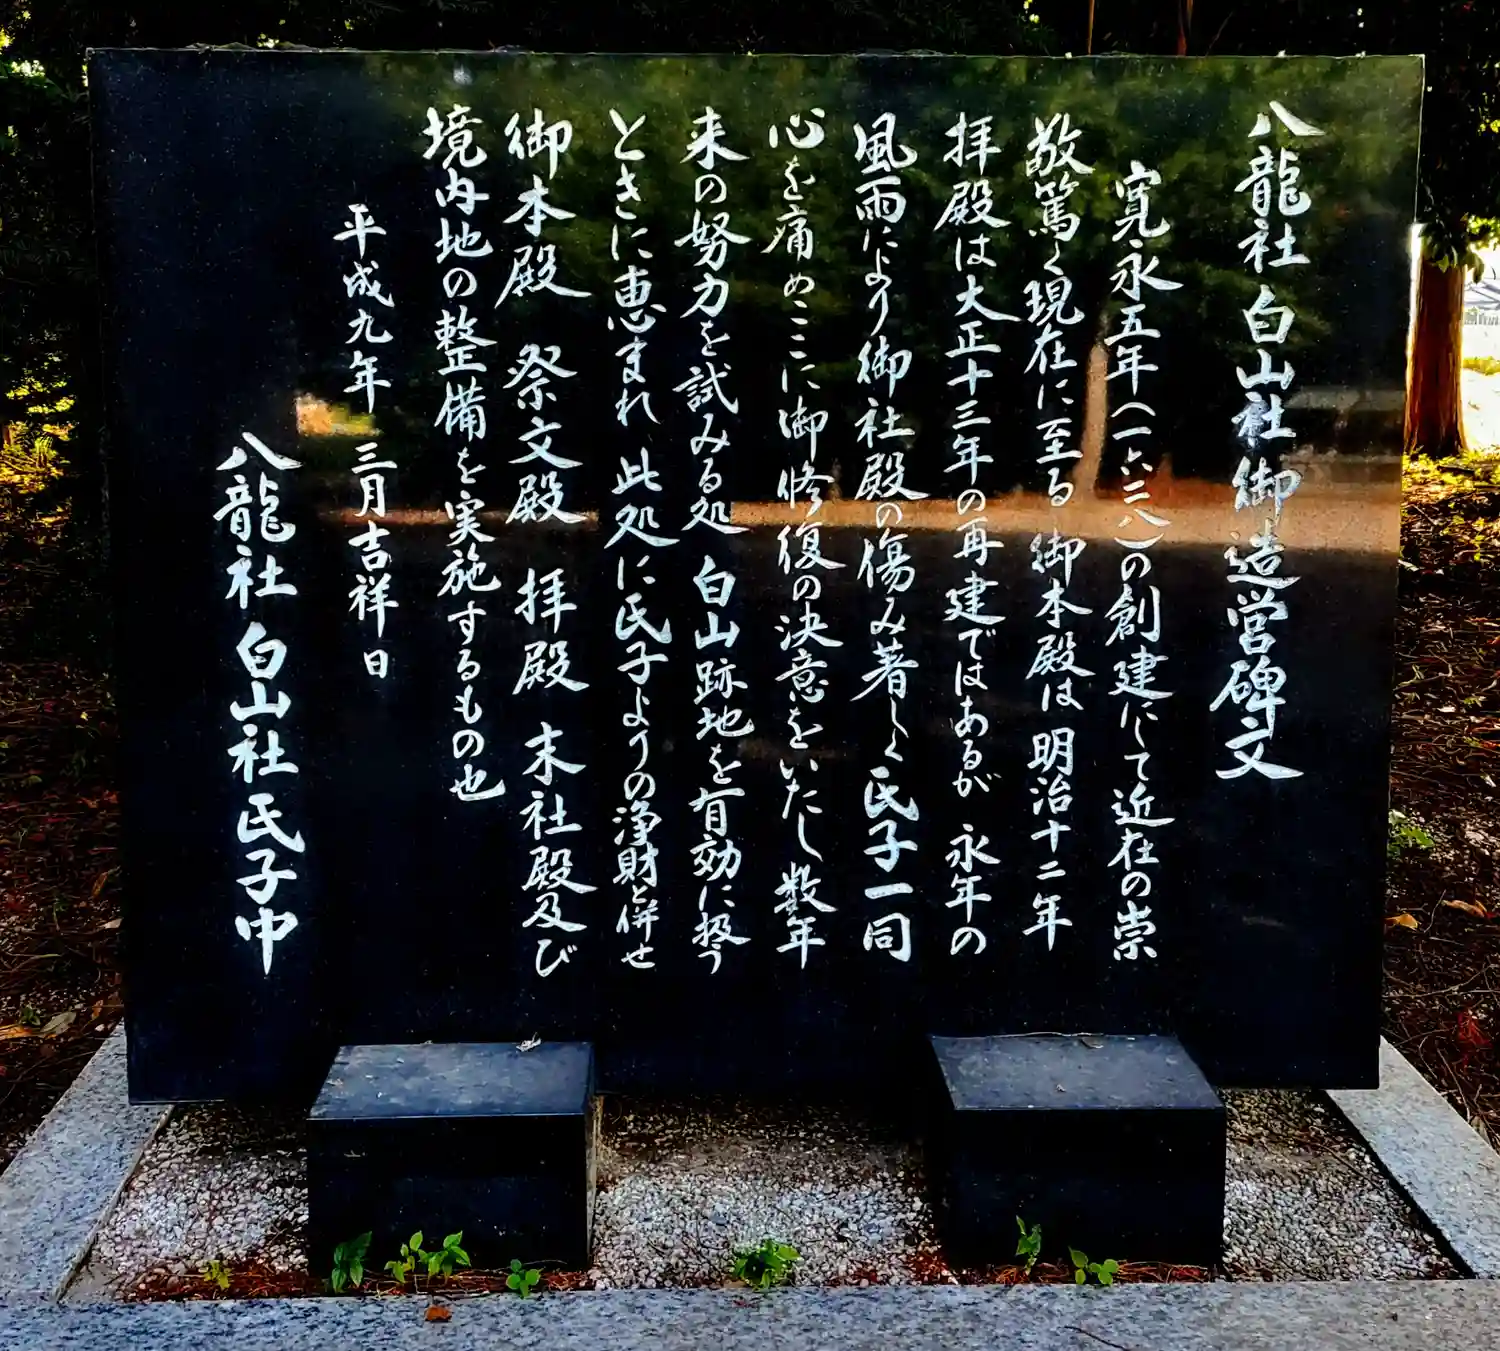 八龍社 白山社御造営碑文
寛永五年(一六二八)の創建にて近在の崇
敬篤く現在に至る 御本殿は明治十二年
拝殿は大正十三年の再建ではあるが 永年の
風雨により御社殿の傷み著しく氏子一同
心を痛めここに御修復の決意をいたし数年
来の努力を試みる処 白山跡地を有効に扱う
ときに恵まれ 此処に氏子よりの浄財と併せ
御本殿 祭文殿 拝殿 末社殿及び
境内地の整備を実施するもの也
平成九年 三月吉祥日
八龍社 白山社 氏子中